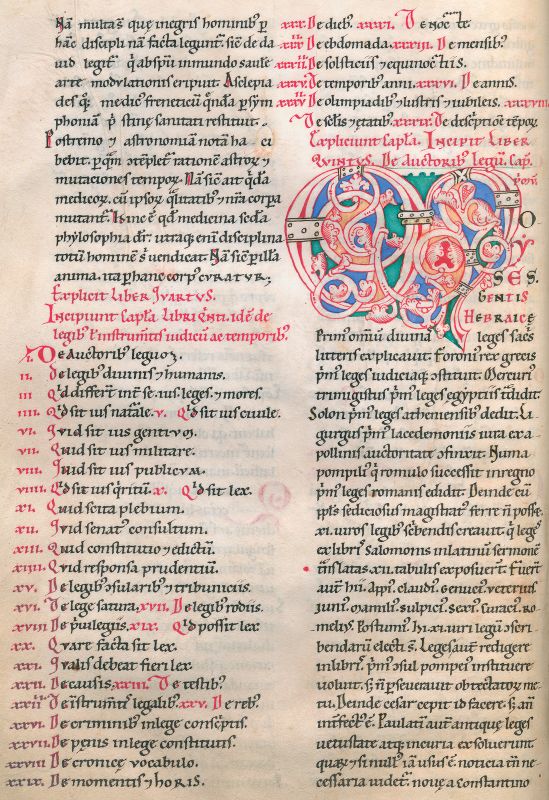 Nā multas̄ que inegris hominib; ꝑ
hāc discipli nā facta legunt. sic̄ de da
uid legit̄ ꝗ abspū inmundo saule
arte modulationis eripuit. Asclepia
des q; medic̾ freneticū qndā ꝑ sym
phoniā pstinę sanitati restituit.
Postremo ⁊ astronomiā notā ha
bebit. ꝑ quā ⁊ rationē astroꝝ ⁊
mutationes tempoꝝ. Nā sic̄ ait qdā
medicoꝝ. cū ipsoꝝ qualitatib; ⁊ nr̄a corpa
mutant̄. Hinc ē qd medicina scdā
phylosophia dr̄. utraq; enī disciplina
totū hominē s̓ uendicat. Nā sic̄ ꝑ illā
anima. ita ꝑ hanc corp̾ curatur;
Explicit liber quartus.
Incipiunt capla libri
legib; ł instrumtis iudicū ac temporib;
I. De Auctorib; leguꝫ.
II. De legib; diuinis ⁊ humanis.
III. Qd differt int̄ se. ius. leges. ⁊ mores.
IIII. Qd sit ius naturale. V. Qd sit ius ciuile.
VI. Quid sit ius gentium.
VII. Quid sit ius militare.
VIII. Quid sit ius publicum.
VIIII. Qd sit ius qritū. X. Qd sit lex.
XI. Quid scita plebium.
XII. Quid senat̾ consultum.
XIII. Quid constitutio ⁊ edictū.
XIIII. Quid responsa prudentiū.
XV. De legib; ⁊sularib; ⁊ tribuniciis.
XVI. De lege satura. XVII. De legib; rodiis.
XVIII. De puilegiis. XIX. Qd possit lex
XX. Quare facta sit lex.
XXI. Qualis debeat fieri lex.
XXII. De causis. XXIII. De testib;
XXIIII. De īstrumt̄ legalib;. XXV. De reb;
XXVI. De criminib; in lege ⁊scptis.
XXVII. De penis in lege constitutis.
XXVIII. De cronicę uocabulo.
XXIX. De momentis ⁊ horis.
XXX. De dieb;. XXXI. De nocte.
XXXII. De ebdomada. XXXIII. De mensib;
XXXIIII. De solsticiis ⁊ equinoctiis.
XXXV. De temporib; anni. XXXVI. De annis.
De olimpiadib; ⁊ lustris ⁊ iubileis. XXXVIII
De sclis ⁊ etatib;. XXXIX. De descptiōe tēpoꝝ
Expliciunt capla. Incipit liber
quintus. De auctorib; legū. Cap.
primū
MO
YSES
GENTIS
HEBRAICE
primus omiū diuinas leges sacris
litteris explicauit. Foroni̾ rex grecis
pm̾ leges iudiciaq; ⁊stituit. Mercuri̾
trimegistus pm̾ leges egyptiis tradidit.
Solon pm̾ leges atheniensib; dedit. Li
gurgus pm̾ lacedemoniis iura ex a
pollinis auctoritate ⁊finxit. Numa
pompili̾ ꝗ romulo successit in regno
pm̾ leges romanis edidit. Deinde cū
ppls sediciosus magistrat̾ ferre ñ posset.
X. uiros legib; scbendis creauit. ꝗ leges
ex libr̄ Salomonis in latinū sermonē
tnslatas. XII. tabulis exposuert̄. Fuert̄
aut̄ hii. Appi̾. claudi̾. genuci̾. ueterius
iuni̾. manili̾. sulpici̾. sexti̾. curaci̾. Ro
meli̾. Postumi̾. Hi. X. uiri legū ⁊scri
bendarū electi s̄. Leges aut̄ redigere
in libr̄. pm̾ ⁊sul pompei̾ instituere
uoluit. s; ñ pseuerauit obtrectatoꝝ me
tu. Deinde cesar cepit id facere. s; an̄
intfect̾ ē. Paulatī aut̄ antique leges
uetustate atq; incuria exsoluerunt.
quaꝝ ⁊si null̾ iā usus ē. noticia tm̄ ne
cessaria uidet̄. Nouę a constantino